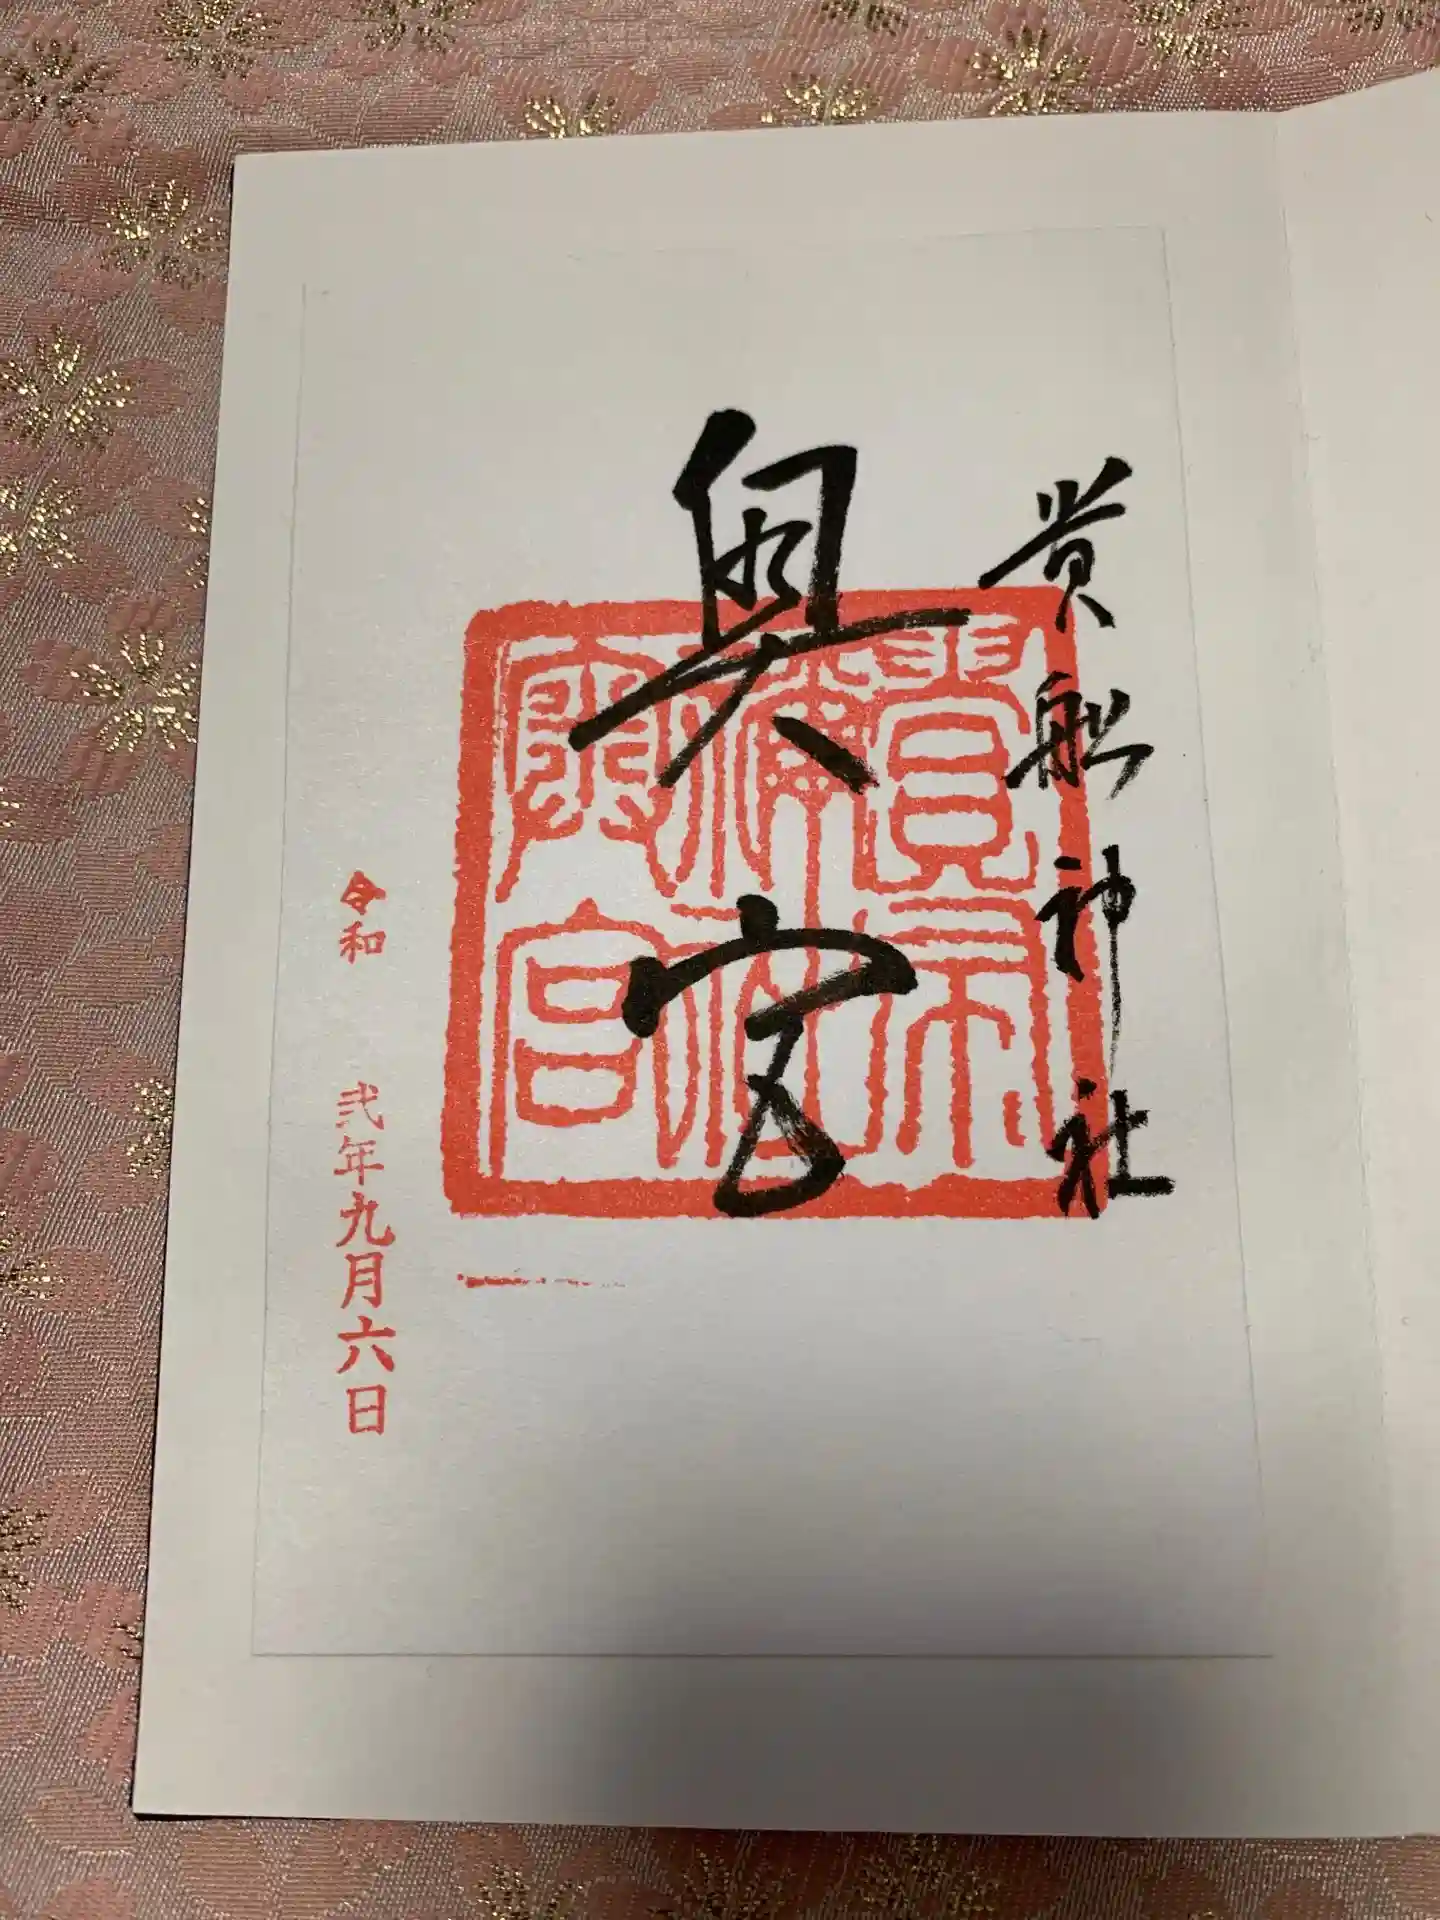 貴船神社
奥宮
貴布
禰
奥宮
令和 弐年九月六日